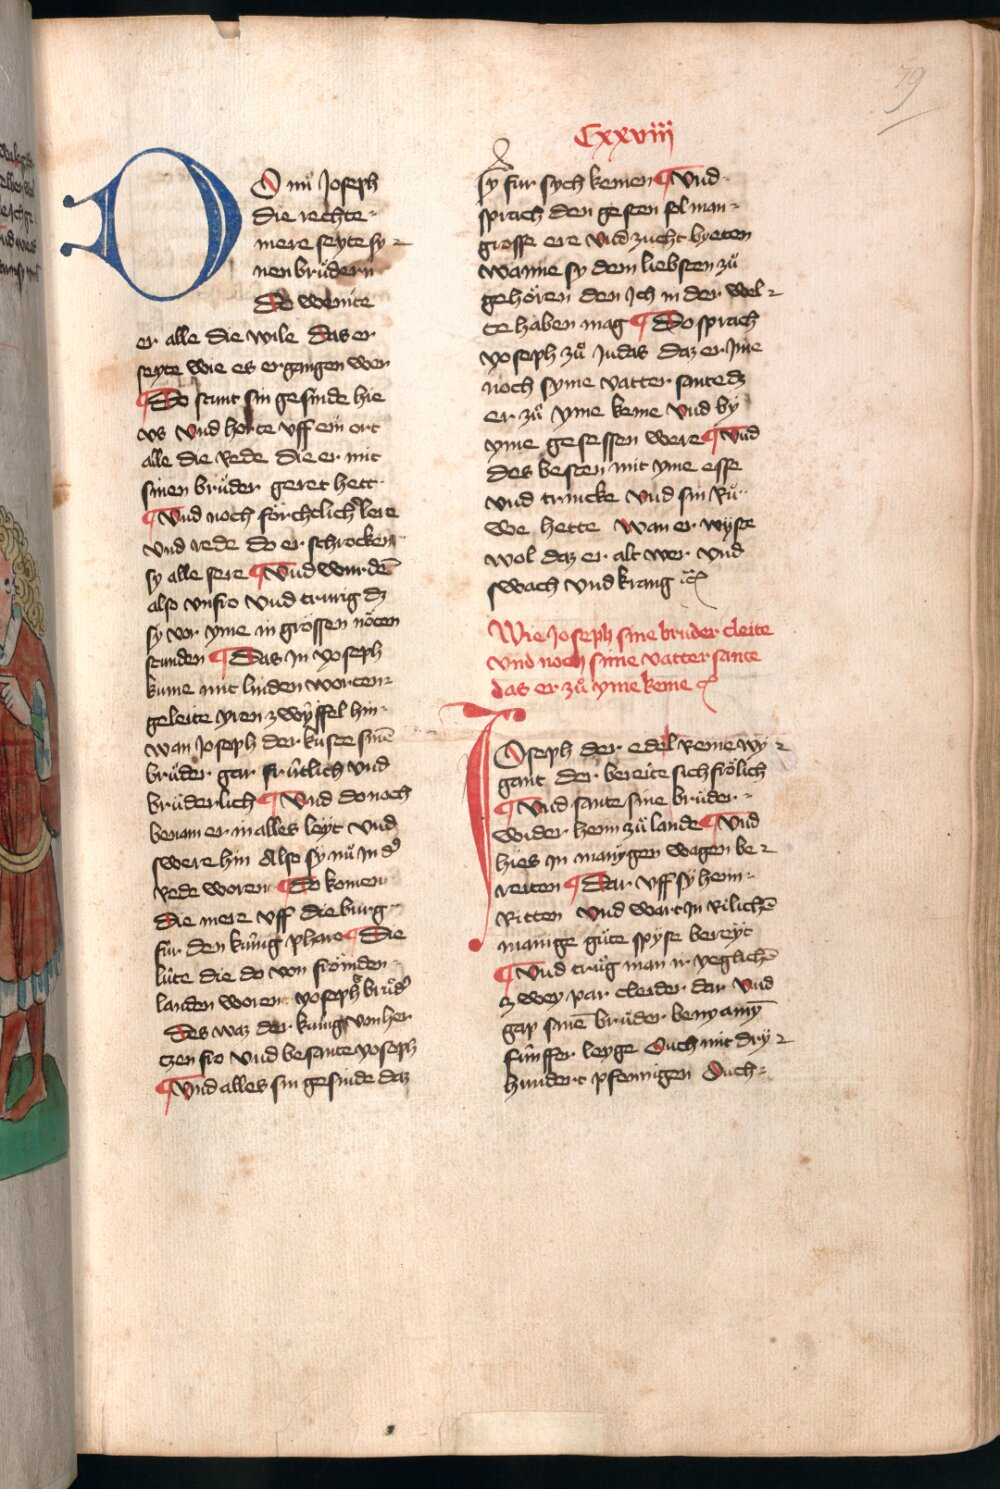 79
Cxxviii
DO nuͦ Joseph
die rechte
mere seyte sy
nen bruͤdern
Do weinte
er alle die wile das er
seyte wie es ergangen wer
¶ Do stunt sin gesinde hie
vs vnd horte vff ein ort
alle die rede die er mit
sinen bruͤder geret hett
¶ Vnd noch förchtlicher lere
vnd rede do erschrocken
sy alle sere ¶ Vnd wurdē
also vnfro vnd trurig dz
sy vor yme in grossen nöten
stunden ¶ Das In yoseph
kume mit linden worten
geleite yren zwyffel hin
wan Joseph der kuste sinē
bruͤder gar fruͤtlich vnd
bruͤderlich ¶ Vnd donoch
benam er in alles leyt vnd
swere hin Also sy nuͦ in der
rede woren ¶ Do komen
die mere vff die burg
fur den kunig pharo ¶ Die
luͤte die do von froͤmden
landen woren yosephs bruͤder
Des waz der kunig von her
tzen fro vnd besante yoseph
¶ Vnd alles sin gesinde daz
sy fur sych kemen ¶ Vnd
sprach den gesten sol man
grosse ere vnd zucht byeten
wanne sy dem liebsten zuͦ
gehören den ich in der wel
te haben mag ¶ Do sprach
yoseph zuͦ Judas daz er Ime
noch syme vatter sante dz
er zuͦ yme keme vnd by
yme gesessen were ¶ Vnd
des besten mit yme esse
vnd trincke vnd sin Ruͦ
we hette wan er wyste
wol daz er alt wer vnd
swach vnd krang ⁊c
Wie Joseph sine bruder cleite
vnd noch sime vatter sante
das er zuͦ yme keme
IOseph der edel reine wy
gant der bereite sich frölich
¶ Vnd sante sine bruͤder
wider heim zuͦ lande ¶ Vnd
hies in manygen wagen be
reiten ¶ Dar vff sy heim
Ritten vnd wart In rilichē
manige guͤte spyse bereyt
¶ Vnd truͦg man ir yeglichē
zwey par cleider dar vnd
gap sinē bruͤder benyamȳ
fuͤnffer leyge Ouch mit dry
hundert pfennigen Ouch